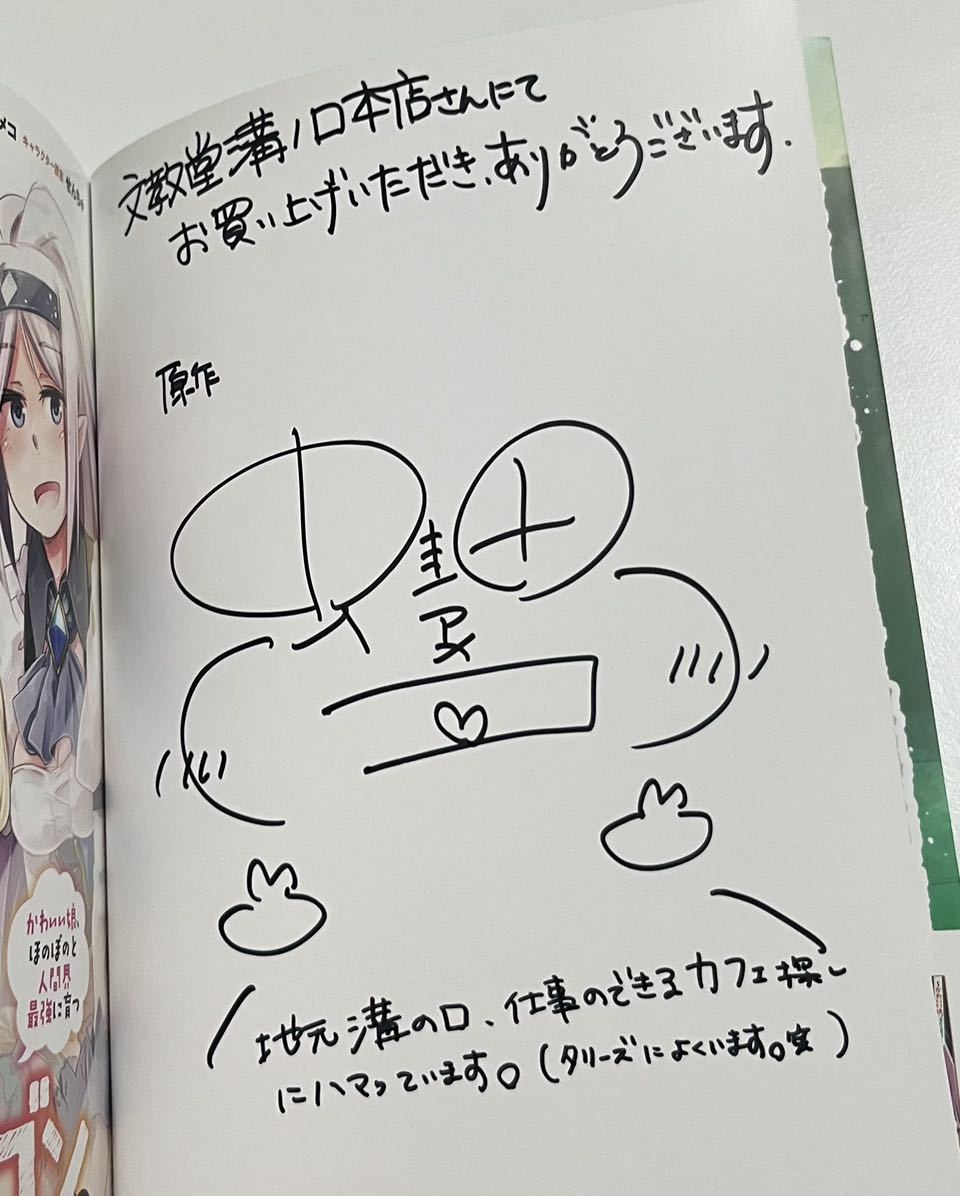 文教堂溝ノ口本店さんにて
お買い上げいただき、ありがとうございます.
原作
地元溝の口、仕事のできるカフェ探し
にハマっています。(タリーズによくいます。笑)
メコ キャラクター原案
かわいい娘、
ほのぼのと
人間界
最強に育つ